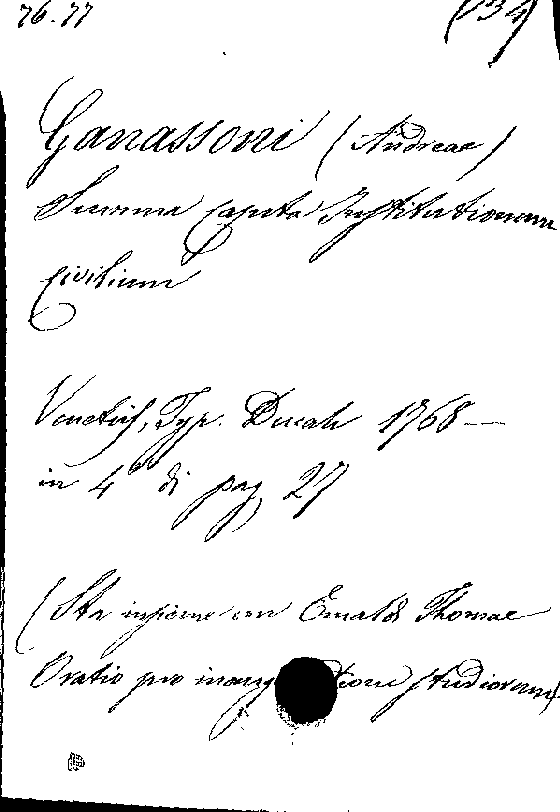 76.77 (134)
Ganassoni (Andreae)
Summa capita Institutionum
Civilium
Venetiis, Typ. Ducali 1768 —
in 4° di pag. 27
(Sta insieme con Emaldi Thomae
Oratio pro inaug tione studiorum)